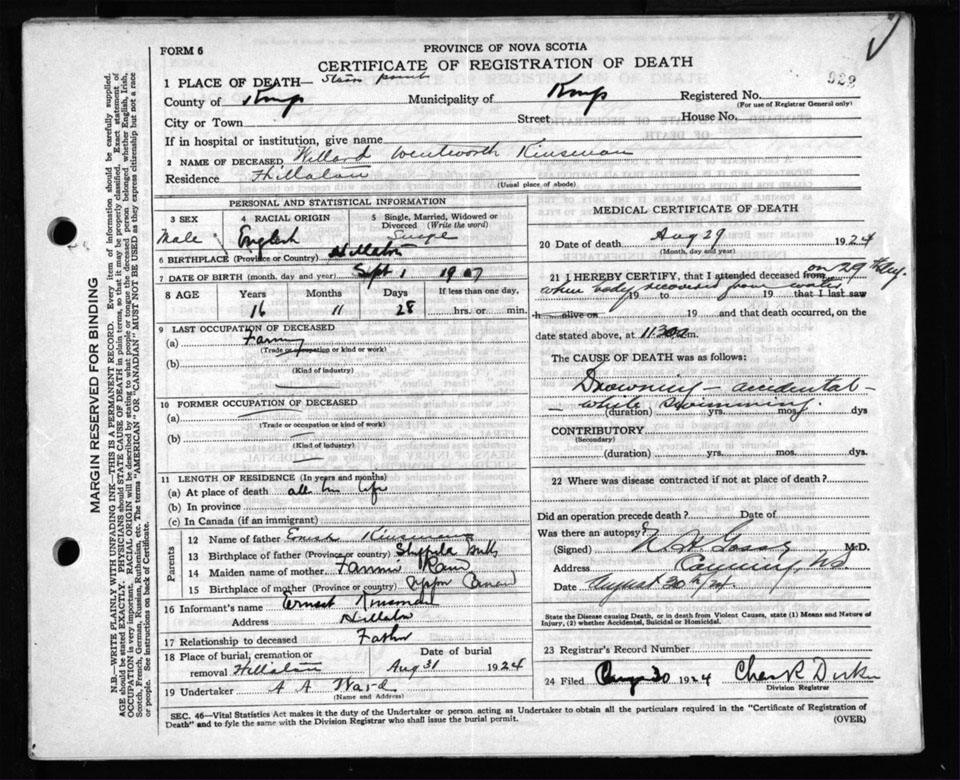 FORM 6
PROVINCE OF NOVA SCOTIA
CERTIFICATE OF REGISTRATION OF DEATH
922
1 PLACE OF DEATH—
County of Kings Municipality of Kings Registered No.
(For use of Registrar General only)
City or Town Street House No.
If in hospital or institution, give name
2 NAME OF DECEASED Willard Wentworth Kinsman
Residence Hillaton
(Usual place of abode)
PERSONAL AND STATISTICAL INFORMATION
3 SEX 4 RACIAL ORIGIN 5 Single, Married, Widowed or Divorced (Write the word)
Male English Single
6 BIRTHPLACE (Province or Country) Hillaton
7 DATE OF BIRTH (month, day and year) Sept 1 1907
8 AGE Years Months Days If less than one day,
16 11 28 hrs. or min.
9 LAST OCCUPATION OF DECEASED
(a) Farming
(Trade or occupation or kind or work)
(b)
(Kind of industry)
10 FORMER OCCUPATION OF DECEASED
(a)
(Trade or occupation or kind of work)
(b)
(Kind of industry)
11 LENGTH OF RESIDENCE (In years and months)
(a) At place of death all his life
(b) In province
(c) In Canada (if an immigrant)
Parents
12 Name of father Ernest Kinsman
13 Birthplace of father (Province or country)
14 Maiden name of mother Fannie Rand
15 Birthplace of mother (Province or country) Upper Canard
16 Informant's name Ernest Kinsman
Address Hillaton
17 Relationship to deceased Father
18 Place of burial, cremation or removal Hillaton
Date of burial Aug 31 1924
19 Undertaker A A Ward
(Name and Address)
MEDICAL CERTIFICATE OF DEATH
20 Date of death Aug 29 1924
(Month, day and year)
21 I HEREBY CERTIFY, that I attended deceased from on 29th
when body recovered from water
19 to 19 that I last saw
h alive on 19 and that death occurred, on
date stated above, at 11.30 a m.
The CAUSE OF DEATH was as follows:
Drowning — accidental —
— while swimming.
(duration) yrs. mos. dys
CONTRIBUTORY
(Secondary)
(duration) yrs. mos. dys
22 Where was disease contracted if not at place of death?
Did an operation precede death? Date of
Was there an autopsy?
(Signed) M.D.
Address Canning, NS
Date August 30th/24
State the Disease causing Death, or in death from Violent Causes, state (1) Means and Nature of Injury, (2) whether Accidental, Suicidal or Homicidal.
23 Registrar's Record Number
24 Filed Aug 30 1924 Chas R
Division Registrar
SEC. 46—Vital Statistics Act makes it the duty of the Undertaker or person acting as Undertaker to obtain all the particulars required in the "Certificate of Registration of
Death" and to fyle the same with the Division Registrar who shall issue the burial permit.
(OVER)
MARGIN RESERVED FOR BINDING
N.B.—WRITE PLAINLY WITH UNFADING INK—THIS IS A PERMANENT RECORD. Every item of information should be carefully supplied.
AGE should be stated EXACTLY. PHYSICIANS should STATE CAUSE OF DEATH in plain terms, so that it may be properly classified. Exact statement of
OCCUPATION is very important. RACIAL ORIGIN will be described by stating to what people or tongue the deceased person belonged whether English, Irish,
Scotch, French, German, Russian, Ruthenian, etc. The terms "AMERICAN" OR "CANADIAN" MUST NOT BE USED as they express citizenship but not a race
or people. See instructions on back of Certificate.